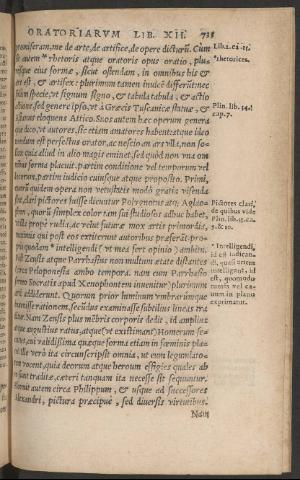 ORATORIARVM LIB. XII. 735
promiseram, me de arte, de artifice, de opere dicturũ. Cum
sit autem *rhetoris atque oratoris opus oratio, plu-
resque eius formæ, sicut ostendam, in omnibus his &
ars est, & artifex: plurimum tamen inuicẽ differũt: nec
solùm specie, vt signum signo, & tabula tabula, & actio
actione: sed genere ipso, vt à Græcis Tuscanicæ statuæ,
Asianus eloquens Attico. Suos autem hæc operum genera
quæ dico, vt autores, sic etiam amatores habent: atque ideo
nondum est perfectus orator, ac nescio an ars vlla, non so-
lùm quia aliud in alio magis eminet, sed quòd non vna om-
nibus forma placuit, partim conditione vel temporum vel
locorum, partim iudicio cuiusque atque proposito. Primi,
quorũ quidem opera non vetustatis modò gratia visenda
sunt, clari pictores fuisse dicuntur Polygnotus atq; Aglao-
phon, quorũ simplex color tam sui studiosos adhuc habet,
vt illa propè rudia, ac velut futuræ mox artis primordia,
maximis qui post eos extiterunt autoribus præferãt: pro-
prio quodam *intelligendi (vt mea fert opinio) ambitu.
Post Zeuxis atque Parrhasius non multum ætate distantes
circa Peloponesia ambo tempora, nam cum Parrhasio
sermo Socratis apud Xenophontem inuenitur) plurimum
arti addiderunt. Quorum prior luminum vmbrarumque
inuenisse rationem, secũdus examinasse subtilius lineas tra-
ditur. Nam Zeuxis plus mẽbris corporis dedit, id amplius
atque augustius ratus, atque (vt existimant) Homerum se-
cutus, cui validissima quæque forma etiam in fœminis pla-
cet. Ille verò ita circunscripsit omnia, vt eum legumlato-
rem vocent, quia deorum atque heroum effigies quales ab
eo sunt traditæ, cæteri tanquam ita necesse sit sequuntur.
Floruit autem circa Philippum, & vsque ad successores
Alexandri, pictura præcipuè, sed diuersis virtutibus.
Nam
Lib. 2. ca. 15.
*rhetorices.
Plin. lib. 34.
cap. 7.
Pictores clari,
de quibus vide
Plin. lib. 35. ca.
9. & 10.
*Intelligendi,
id est iudican-
di, quasi artem
intelligant, id
est, quomodo